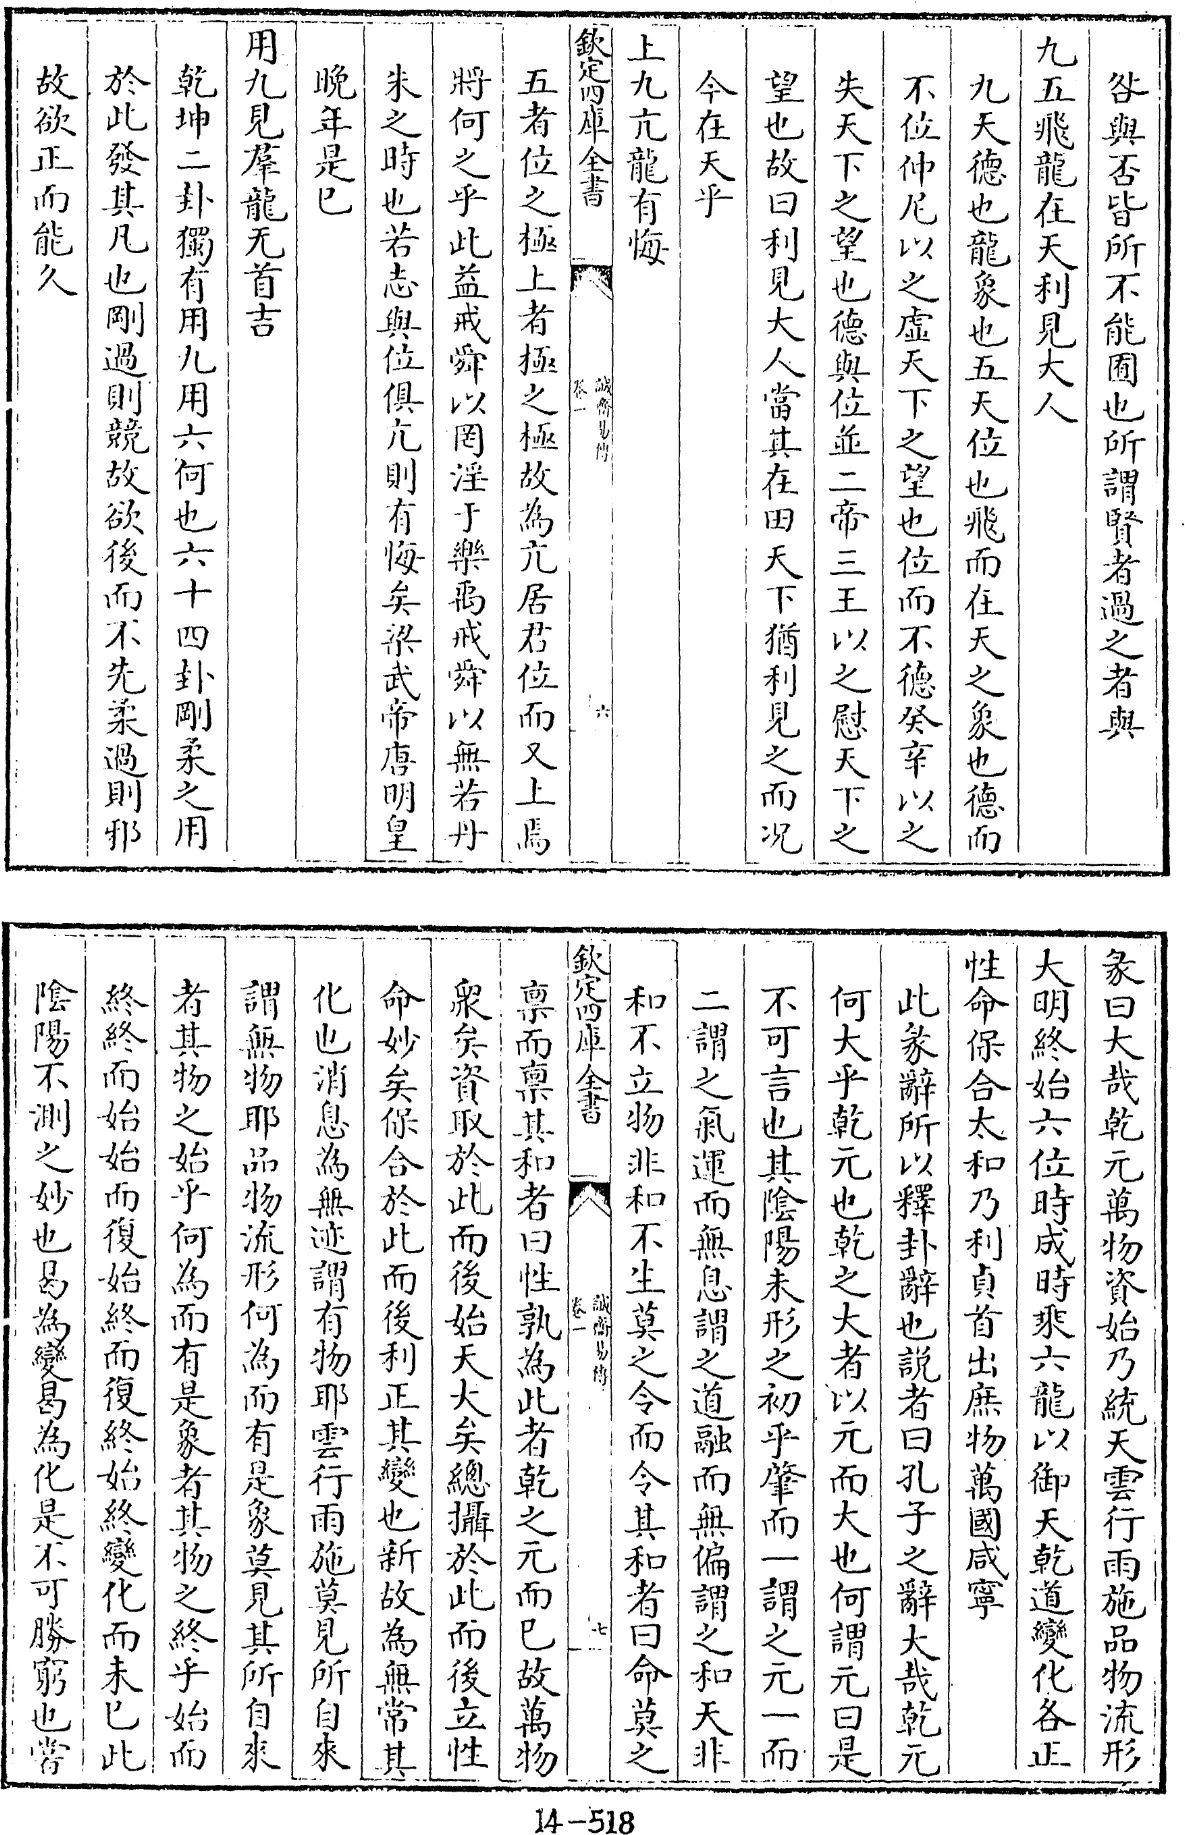 咎與否皆所不能囿也所謂賢者過之者與
九五飛龍在天利見大人
九天德也龍象也五天位也飛而在天之象也德而
不位仲尼以之虛天下之望也位而不德癸辛以之
失天下之望也德與位並二帝三王以之慰天下之
望也故曰利見大人當其在田天下猶利見之而况
今在天乎
上九亢龍有悔
欽定四庫全書
誠齋易傳
卷一
六
五者位之極上者極之極故為亢居君位而又上焉
將何之乎此益戒舜以罔淫于樂禹戒舜以無若丹
朱之時也若志與位俱亢則有悔矣梁武帝唐明皇
晩年是已
用九見羣龍无首吉
乾坤二卦獨有用九用六何也六十四卦剛柔之用
於此發其凡也剛過則競故欲後而不先柔過則邪
故欲正而能久
彖曰大哉乾元萬物資始乃統天雲行雨施品物流形
大明終始六位時成時乘六龍以御天乾道變化各正
性命保合太和乃利貞首出庶物萬國咸寧
此彖辭所以釋卦辭也説者曰孔子之辭大哉乾元
何大乎乾元也乾之大者以元而大也何謂元曰是
不可言也其陰陽未形之初乎肇而一謂之元一而
二謂之氣運而無息謂之道融而無偏謂之和天非
和不立物非和不生莫之令而令其和者曰命莫之
欽定四庫全書
誠齋易傳
卷一
七
禀而禀其和者曰性孰為此者乾之元而已故萬物
衆矣資取於此而後始天大矣總攝於此而後立性
命妙矣保合於此而後利正其變也新故為無常其
化也消息為無迹謂有物耶雲行雨施莫見所自來
謂無物耶品物流形何為而有是象莫見其所自來
者其物之始乎何為而有是象者其物之終乎始而
終終而始始而復始終而復終始終變化而未已此
陰陽不測之妙也曷為變曷為化是不可勝窮也嘗
14-518